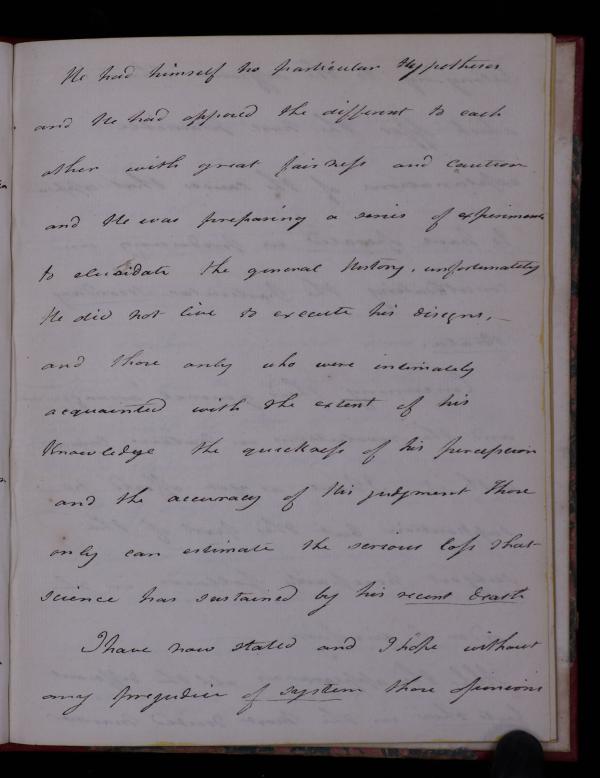 He had himself no particular Hypotheses
and He had opposed the different to each
other with great fairness and caution
and He was preparing a series of experiments
to elucidate the general History, unfortunately
He did not live to execute his designs, –
and those only who were intimately
acquainted with the extent of his
Knowledge the quickness of his perception
and the accuracy of His judgment those
only can estimate the serious loss that
science has sustained by his recent death
I have now stated and I hope without
any prejudice of system those opinions